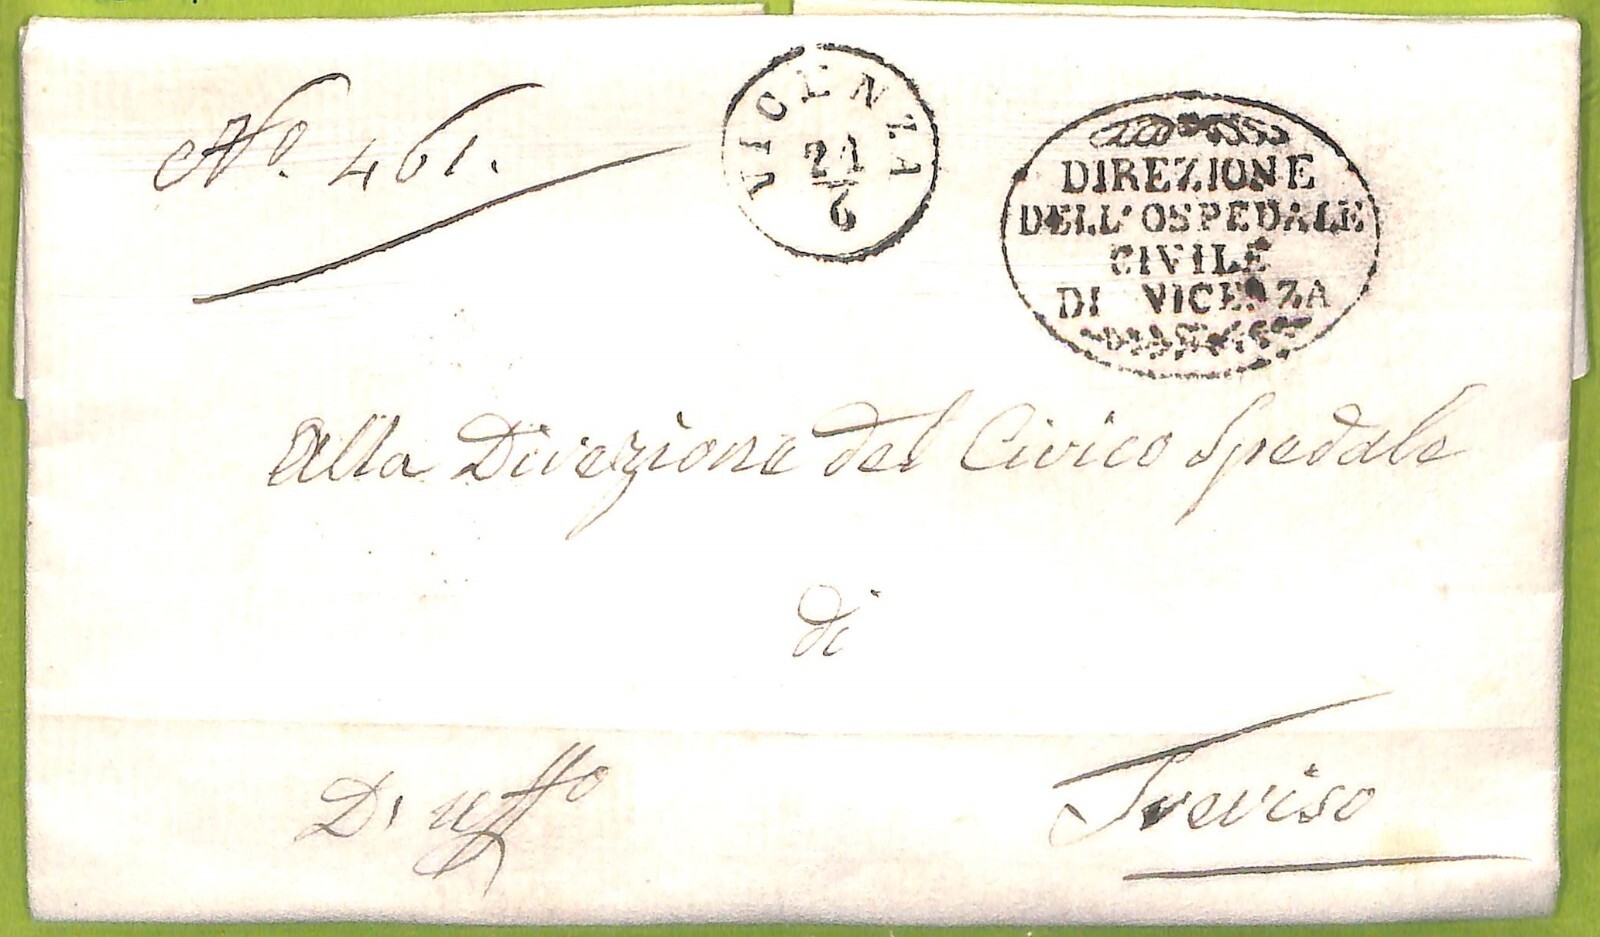 No. 461.
VICENZA
21
6
DIREZIONE
DELL'OSPEDALE
CIVILE
DI VICENZA
Alla Direzione del Civico Spedale
di
Treviso
D'uffo